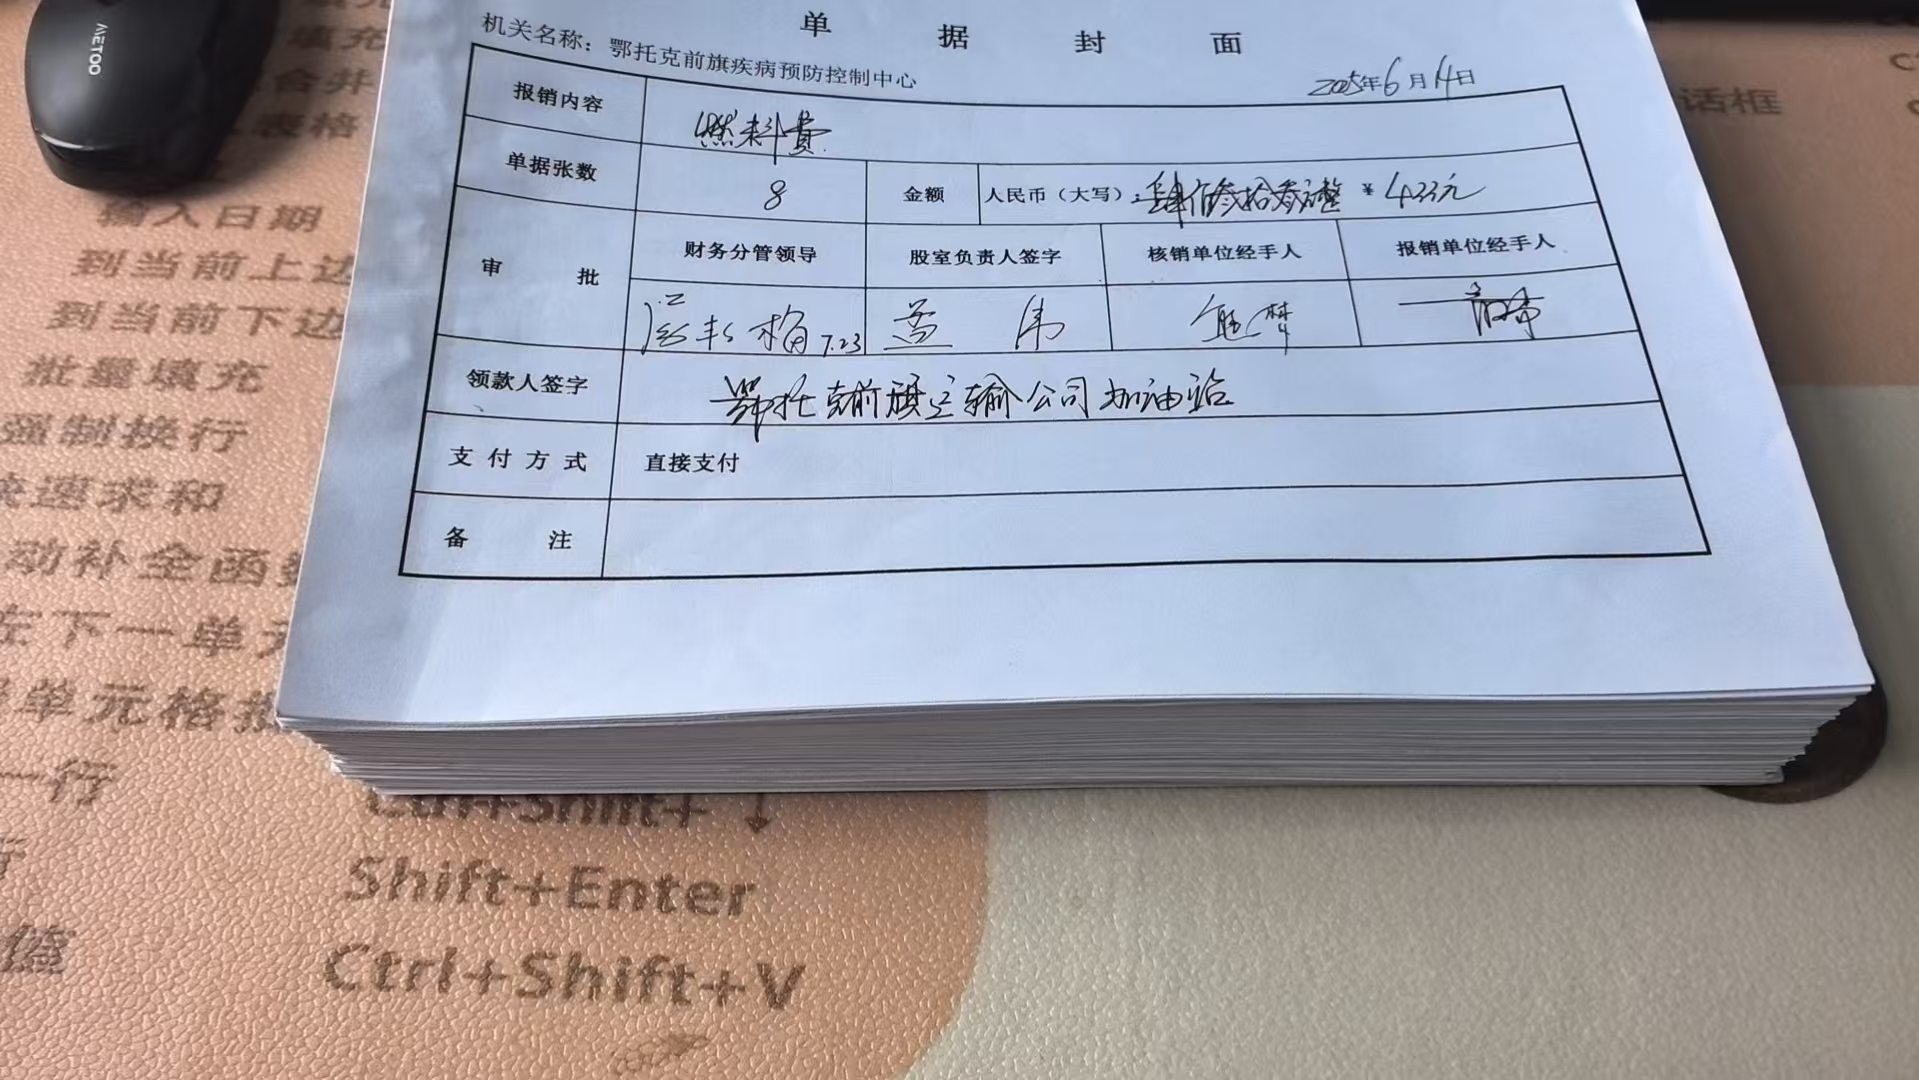 单据封面
机关名称：鄂托克前旗疾病预防控制中心
2025年6月14日
报销内容 燃料费
单据张数 8 金额 人民币（大写）：肆佰叁拾叁元整 ¥ 433元
审批 财务分管领导 股室负责人签字 核销单位经手人 报销单位经手人
7.23
领款人签字 鄂托克前旗运输公司加油站
支付方式 直接支付
备注
METOO
填充
合并
表格
输入日期
到当前上边
到当前下边
批量填充
强制换行
快速求和
动补全函数
左下一单元
单元格
一行
话框
Ctrl+Shift+↓
Shift+Enter
Ctrl+Shift+V
值